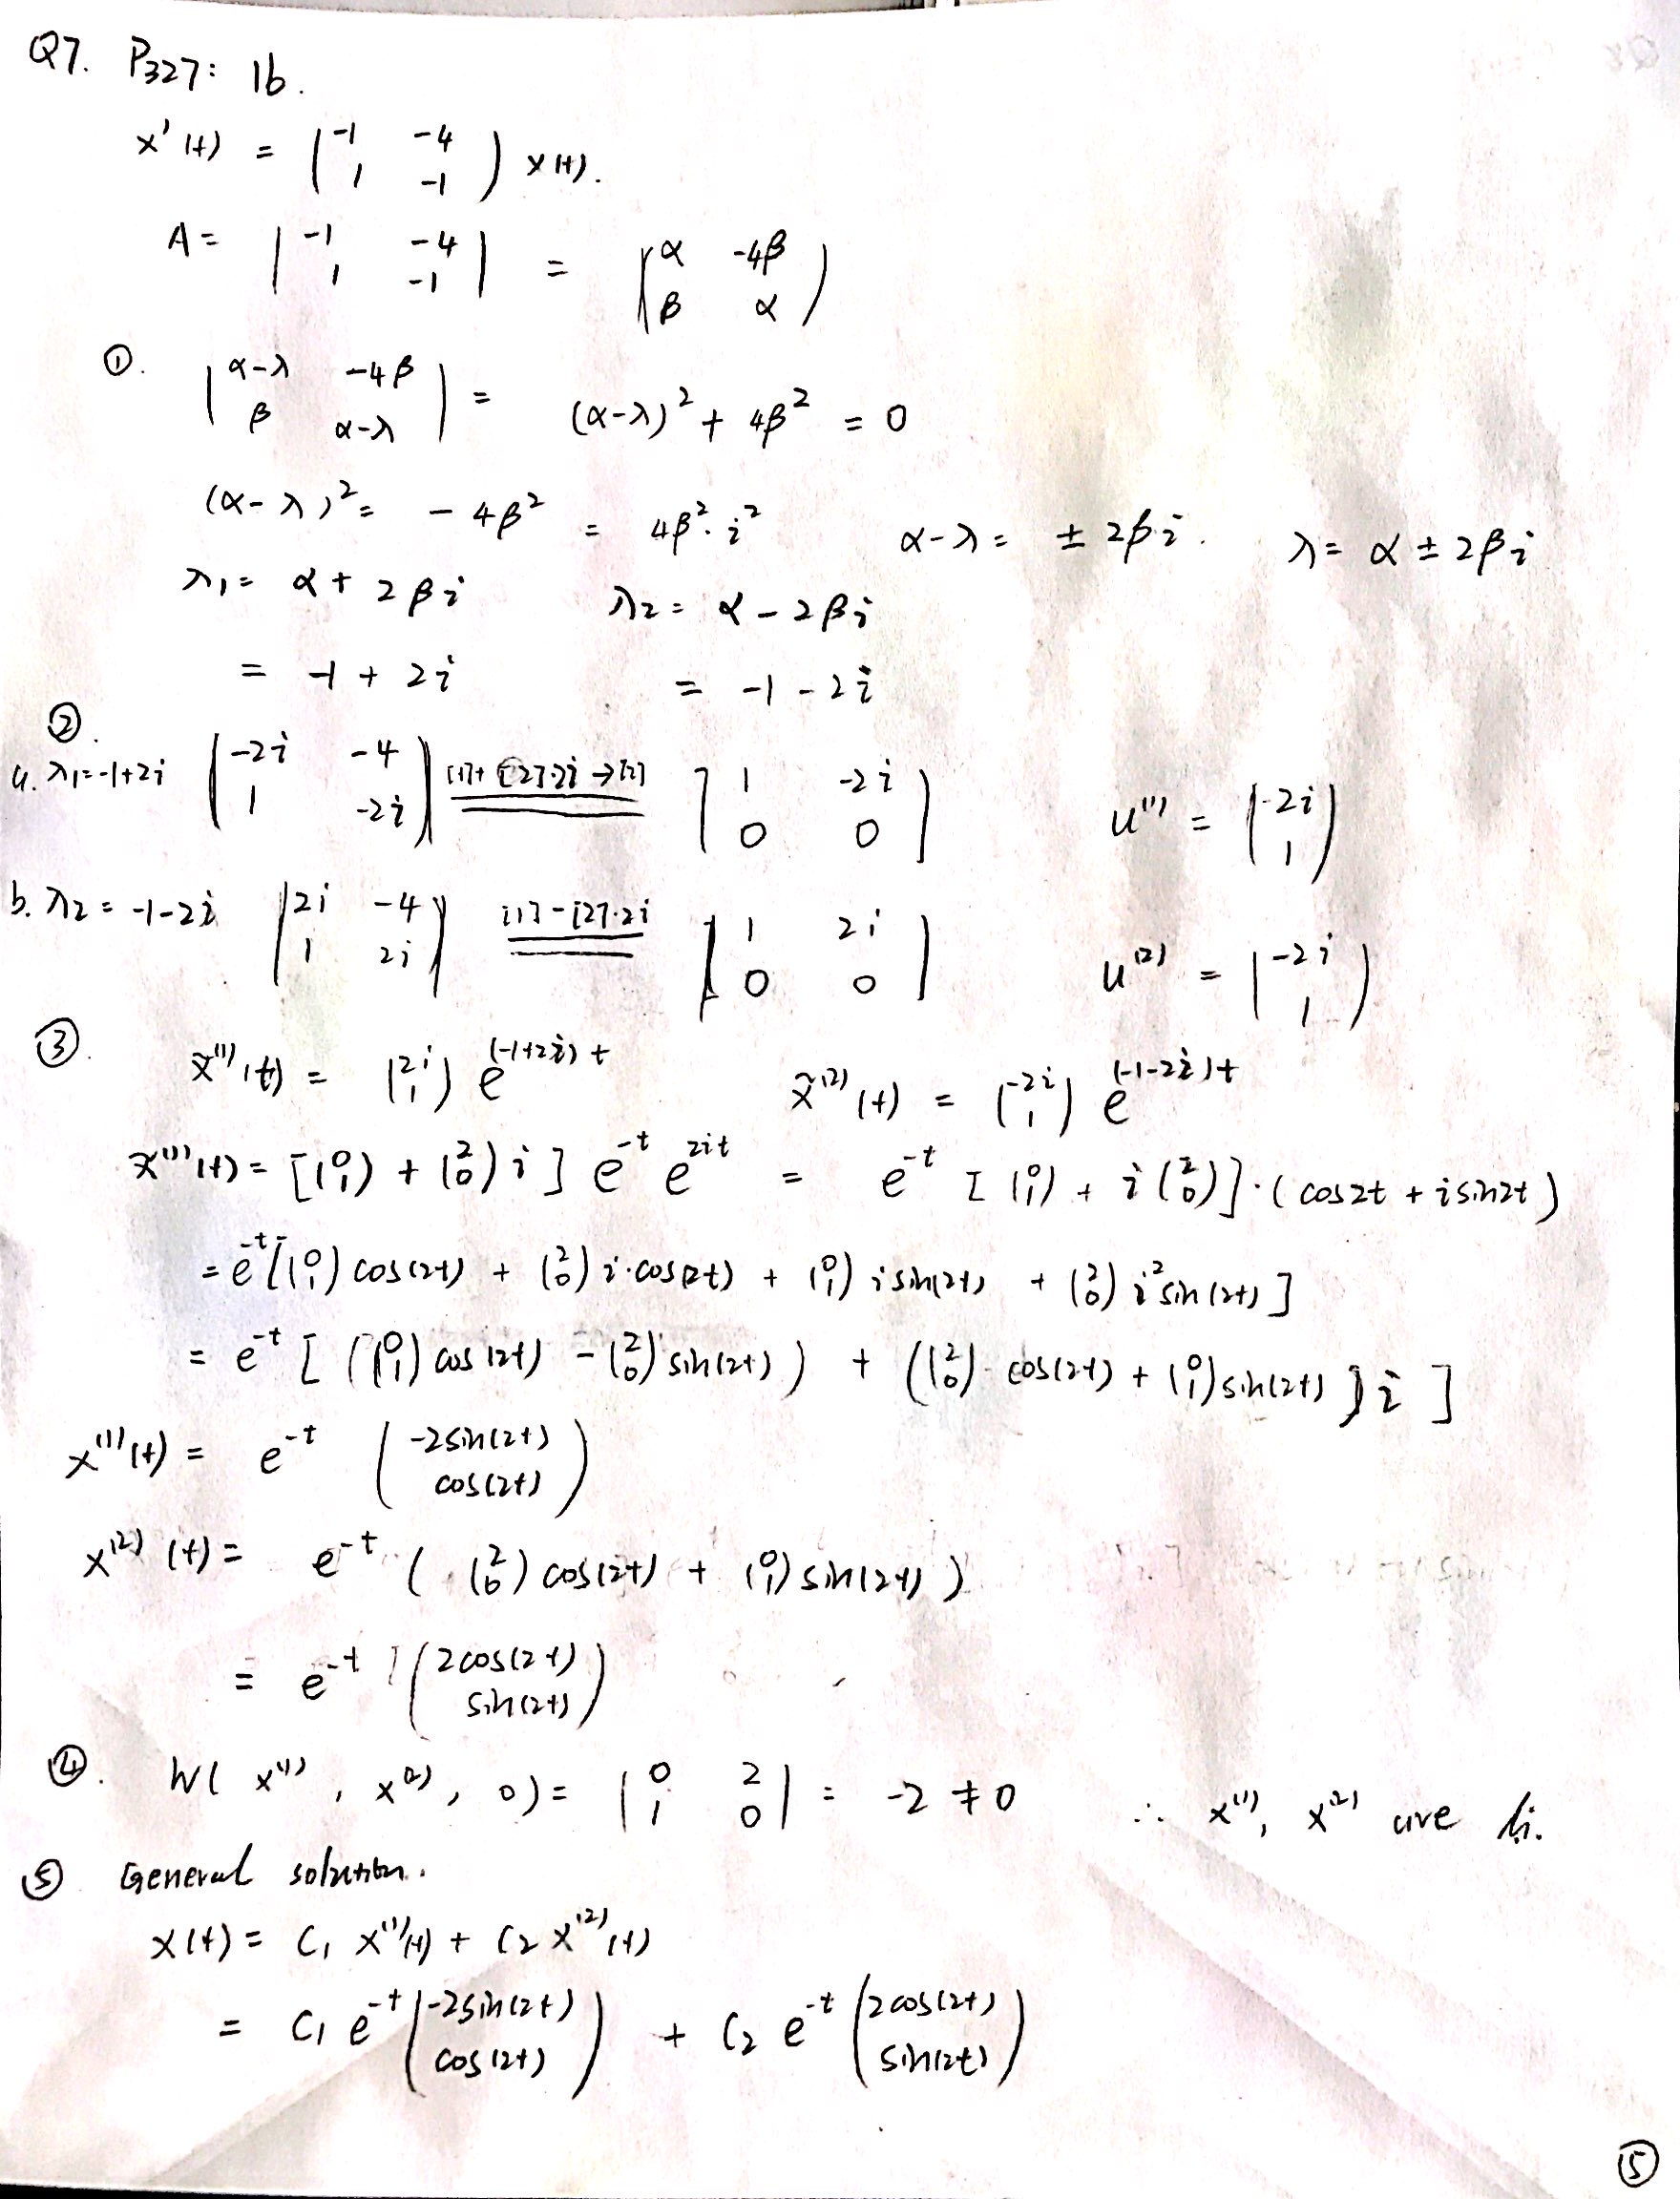 Q7. P327: 1b.
x'(t) = (-1 -4; 1 -1) x(t).
A = |-1 -4; 1 -1| = (α -4β; β α)
①. |α-λ -4β; β α-λ| = (α-λ)² + 4β² = 0
(α-λ)² = -4β² = 4β²·i² α-λ = ± 2βi. λ = α ± 2βi
λ1 = α + 2βi λ2 = α - 2βi
= -1 + 2i = -1 - 2i
②.
a. λ1=-1+2i (-2i -4; 1 -2i) [1]+[2]·2i→[2] (1 -2i; 0 0) u⁽¹⁾ = (-2i; 1)
b. λ2 = -1-2i (2i -4; 1 2i) [1]-[2]·2i (1 2i; 0 0) u⁽²⁾ = (-2i; 1)
③. x̃⁽¹⁾(t) = (2i; 1) e^(-1+2i)t x̃⁽²⁾(t) = (-2i; 1) e^(-1-2i)t
x̃⁽¹⁾(t) = [(0; 1) + (2; 0) i] e^-t e^2it = e^-t [(0; 1) + i (2; 0)]·(cos2t + isin2t)
= e^-t [(0; 1) cos(2t) + (2; 0) i·cos(2t) + (0; 1) isin(2t) + (2; 0) i²sin(2t)]
= e^-t [((0; 1) cos(2t) - (2; 0) sin(2t)) + ((2; 0)·cos(2t) + (0; 1) sin(2t)) i]
x⁽¹⁾(t) = e^-t (-2sin(2t); cos(2t))
x⁽²⁾(t) = e^-t ((2; 0) cos(2t) + (0; 1) sin(2t))
= e^-t (2cos(2t); sin(2t))
④. W(x⁽¹⁾, x⁽²⁾, 0) = |0 2; 1 0| = -2 ≠ 0 ∴ x⁽¹⁾, x⁽²⁾ are li.
⑤ General solution.
x(t) = C1 x⁽¹⁾(t) + C2 x⁽²⁾(t)
= C1 e^-t (-2sin(2t); cos(2t)) + C2 e^-t (2cos(2t); sin(2t))
⑤